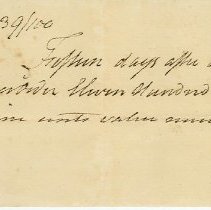 39/100
Fifteen days after
order Eleven Hundred
value